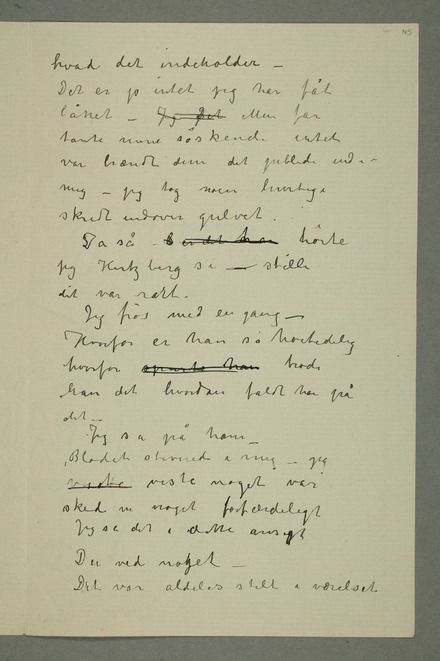 hvad det indeholder –
Det er jo intet jeg har fåt
låttet – Men far
tante mine søskende intet
var hændt dem det
mig – jeg tog noen hurtige
skridt indover gulvet.
Da så hörte
jeg Hertzberg si – stille
det var rart.
Jeg frös med en gang –
Hvorfor er han så höitidelig
hvorfor
han det hvordan faldt han på
det –
Jeg så på ham –
Blodet stivned i mig – jeg
viste noget var
sked noget forfærdeligt
Jeg så det i dette ansigt
Du ved noget –
Det var aldeles stilt i værelset